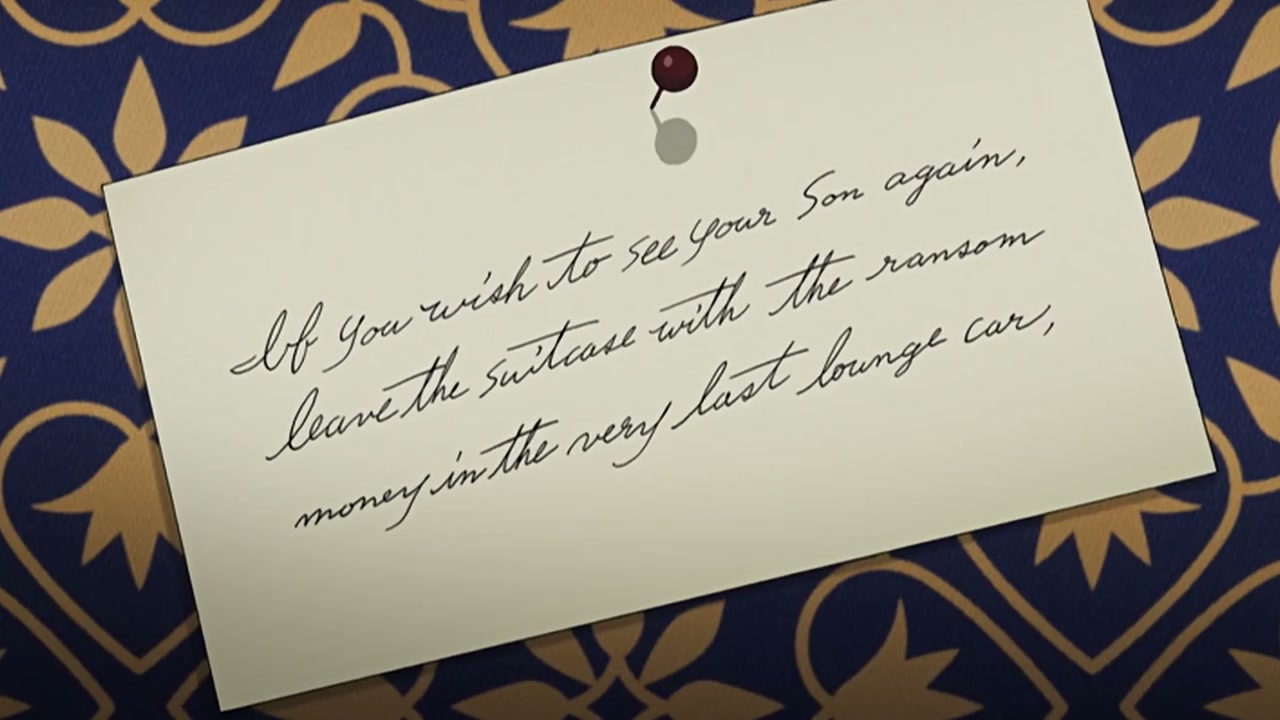 If you wish to see your Son again,
leave the suitcase with the ransom
money in the very last lounge car,